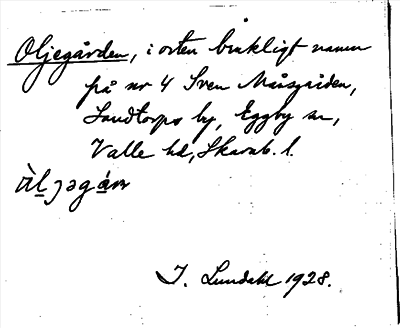 Oljegården, i orten brukligt namn
på nr 4 Sven Måsgården,
Sandtorps by, Eggby sn,
Valle hd, Skarab. l.
I. Lundahl 1928.